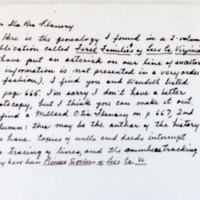 Ila Rea Flanery
Here is the genealogy I found in a 2-volume
publication called First Families of Lee Co, Virginia
have put an asterisk on our line of ancestors
information is not presented in a very orderly
fashion). I find you and Wendell listed
page 665. I'm sorry I don't have a better
photocopy, but I think you can make it out.
find a Millard Otis Flanary on p 667, 2nd
column: this may be the author of the history
have. Copies of wills and deeds interrupt
tracing of lines, and the numbers tracking
may have been
Lee Co. Va.